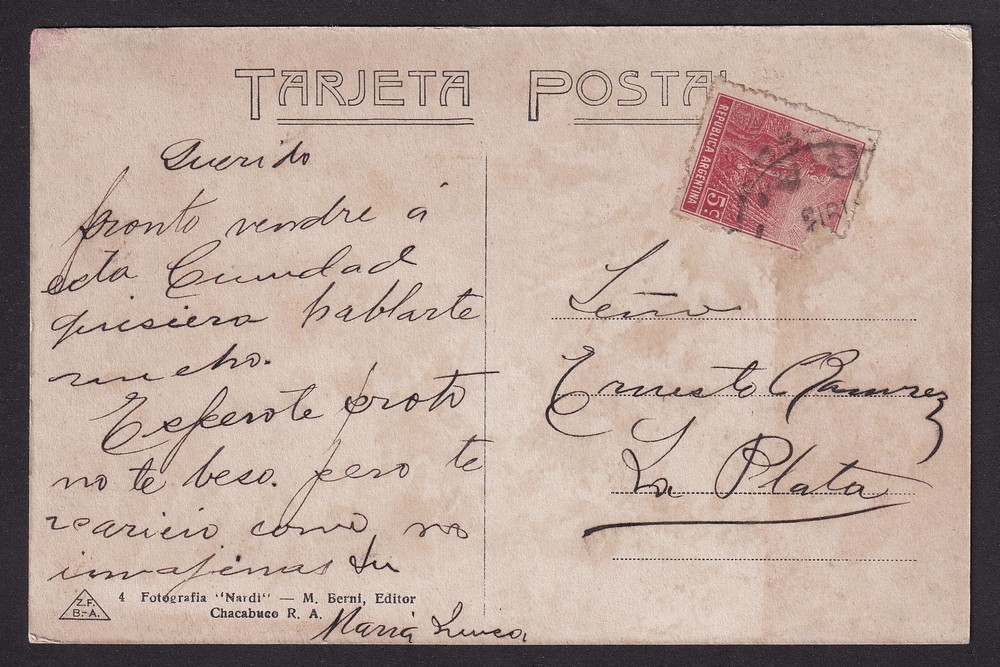 TARJETA POSTAL
REPUBLICA ARGENTINA
5 c.
Querido
pronto vendre á
esta Ciundad
quisiera hablarte
mucho.
Esperote proto
no te beso. pero te
acaricio como no
imajinas tu
Maria
Señor
Ernesto Ramirez
La Plata
Z.F.
B.-A.
4 Fotografia "Nardi" — M. Berni, Editor
Chacabuco R. A.